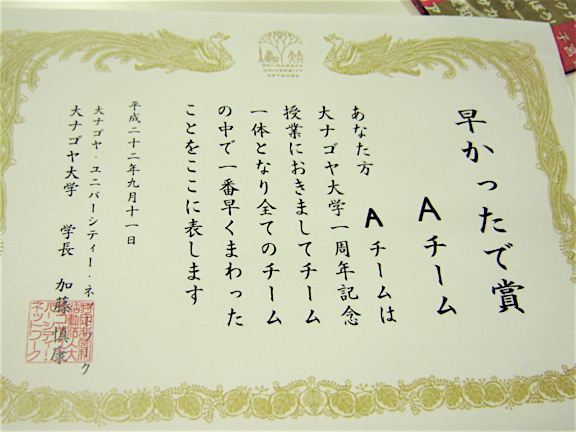 早かったで賞
Aチーム
あなた方 Aチームは
大ナゴヤ大学一周年記念
授業におきましてチーム
一体となり全てのチーム
の中で一番早くまわった
ことをここに表します
平成二十二年九月十一日
大ナゴヤ・ユニバーシティー・ネットワーク
大ナゴヤ大学 学長 加藤慎康
DAI-NAGOYA
UNIVERSITY
NETWORK